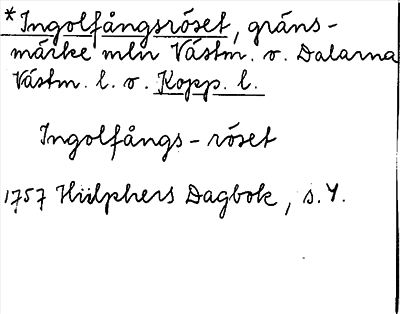 *Ingolfångsröset, gräns-
märke mln Västm. o. Dalarna
Västm. l. o. Kopp. l.
Ingolfångs-röset
1757 Hülphers Dagbok, s. 4.